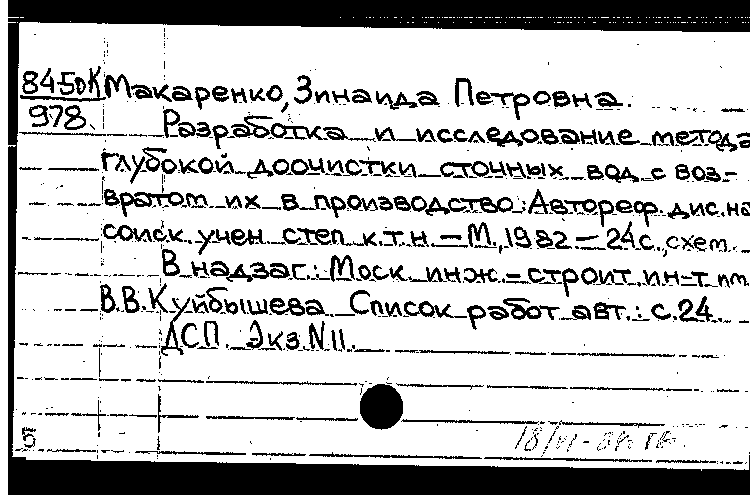 84-50К Макаренко, Зинаида Петровна.
978.
Разработка и исследование метода
глубокой доочистки сточных вод с воз-
вратом их в производство: Автореф. дис. на
соиск. учен. степ. к.т.н. – М., 1982 – 24с., схем.
В надзаг.: Моск. инж.-строит. ин-т им.
В.В. Куйбышева Список работ авт.: с.24.
ДСП. Экз. N 11.
5
18/VI-